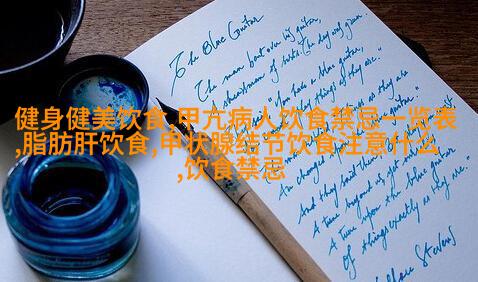 The Blue Guitar
The man bent over his guitar,
A shearsman of sorts. The day was green.
健身健美饮食,甲亢病人饮食禁忌一览表
,脂肪肝饮食,甲状腺结节饮食注意什么
,饮食禁忌
have a blue guitar,
things as they are."
as they are
And they said
A tune beyond us, yet
A tune upon the blue guitar
Of things exactly as they are."
Stevens